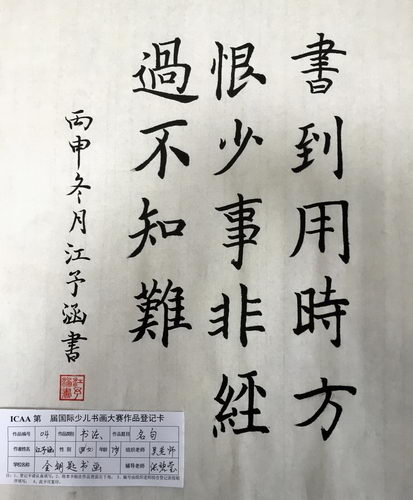 書到用時方
恨少事非經
過不知難
丙申冬月江予涵書
ICAA 第 届国际少儿书画大赛作品登记卡
作品编号 04 作品类别 书法 作品题目 名句
作者姓名 江予涵 性别 (男/女) 年龄 7岁 组织老师 吴老师
学校名称 金钥匙书画 辅导老师